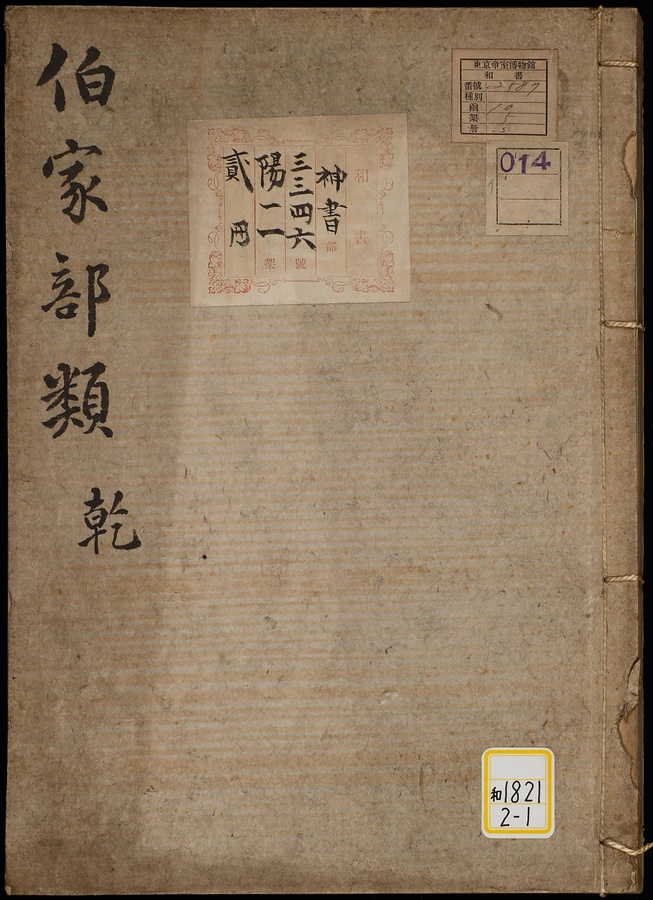 伯家部類 乾
和書
神書部
三三四六號
陽一一架
貳冊
東京帝室博物館
和書
番號 2887
種別
函 10
架 5
册 2
014
和1821
2-1